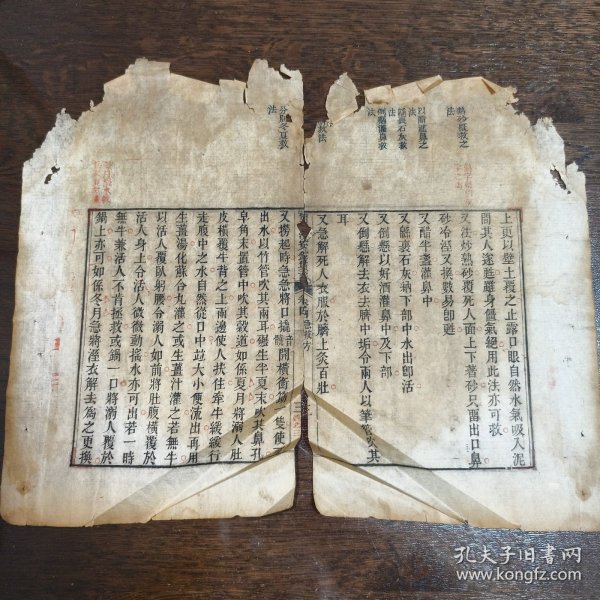 熱砂屍救之
法
以醋灌鼻之
法
綿裹石灰救
法
倒懸灌鼻救
法
救法
上更以壁土覆之止露口眼自然水氣吸入泥
間其人遂甦雖身僵氣絕用此法亦可救
又法炒熱砂覆死人面上下著砂只留出口鼻
砂冷溼又換數易即甦
又醋半盞灌鼻中
又綿裹石灰納下部中水出即活
又倒懸以好酒灌鼻中及下部
又倒懸解去衣去臍中垢令兩人以筆管吹其
耳
又急解死人衣服於臍上灸百壯
分別冬夏救
法
又撈起時急急將口撬開橫銜筯一隻使
出水以竹管吹其兩耳碾生半夏末吹其鼻孔
皁角末置管中吹其穀道如係夏月將溺人肚
皮橫覆牛背之上兩邊使人扶住牽牛緩緩行
走腹中之水自然從口中並大小便流出再用
生薑湯化蘇合丸灌之或生薑汁灌之若無牛
以活人覆臥躬腰令溺人如前將肚腹橫覆於
活人身上令活人微微動搖水亦可出若一時
無牛兼活人不肯拯救或鍋一口將溺人覆於
鍋上亦可如係冬月急將溼衣解去為之更換
孔夫子旧书网
www.kongfz.com